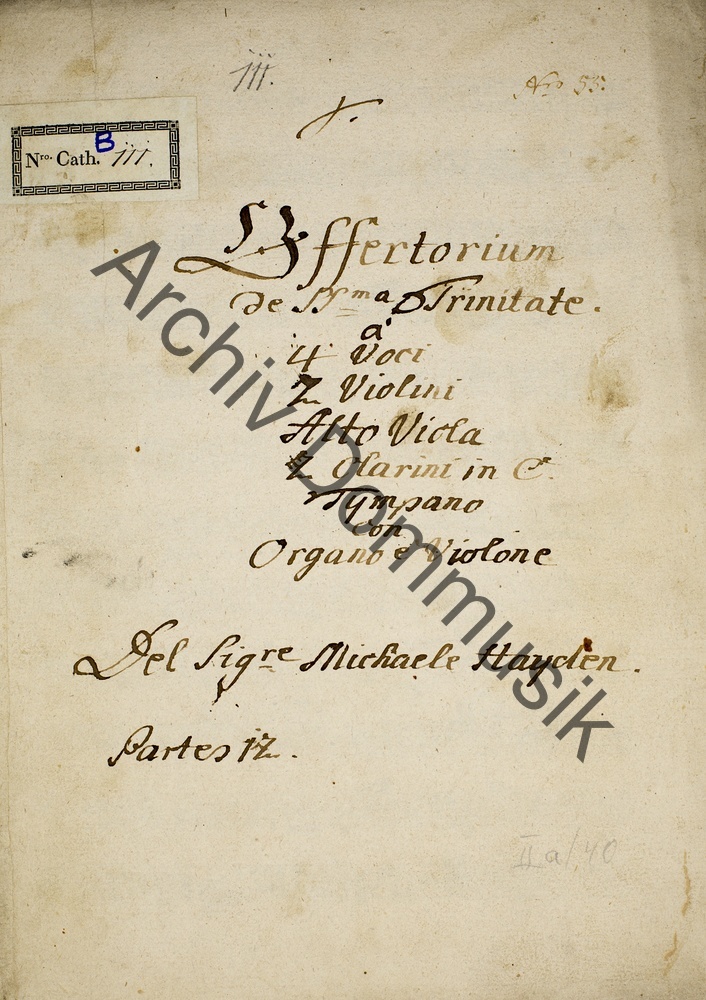 iii.
Nro 55.
Nro. Cath. B iii.
Offertorium
de SSma Trinitate.
a
4 Voci
2 Violini
Alto Viola
2 Clarini in C.
Tympano
con
Organo e Violone
Del Sigre Michaele Hayden.
Partes 12.
II a/40
Archiv Dommusik